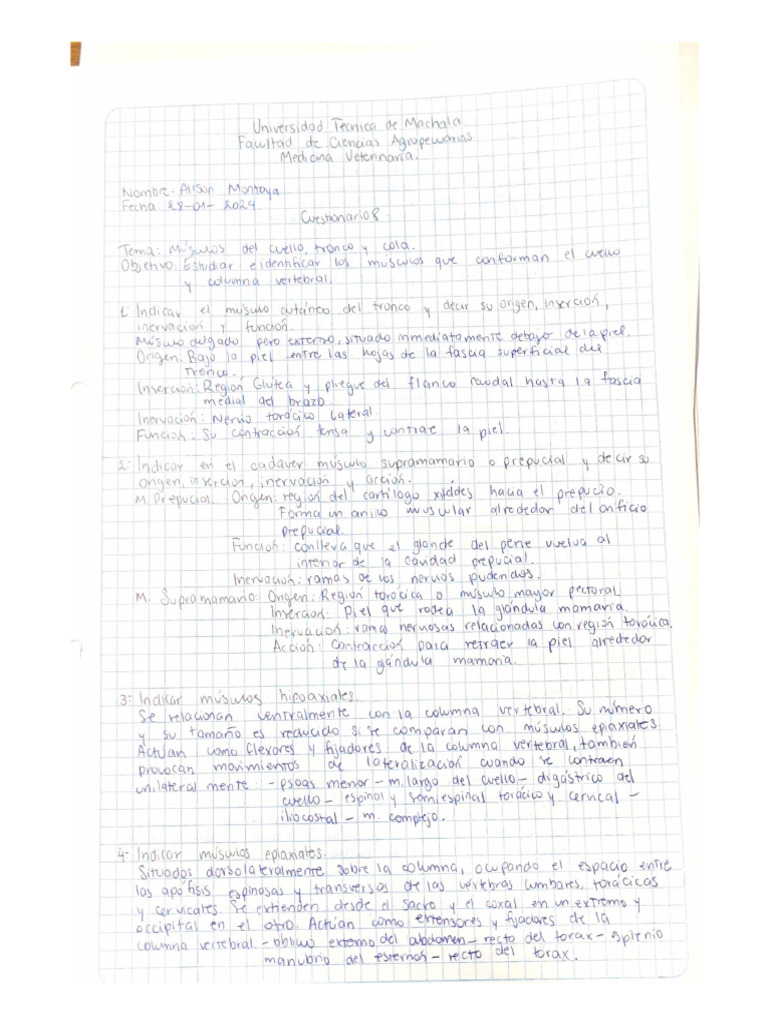 Universidad Tecnica de Machala
Facultad de Ciencias Agropecuarias
Medicina Veterinaria.
Nombre: Alison Montoya
Fecha: 28-01-2024
Cuestionario 8
Tema: Músculos del cuello, tronco y cola.
Objetivo: Estudiar e identificar los músculos que conforman el cuello
y columna vertebral.
1. Indicar el músculo cutáneo del tronco y decir su origen, inserción,
inervación y función.
Músculo delgado pero extenso, situado inmediatamente debajo de la piel.
Origen: Bajo la piel entre las hojas de la fascia superficial del
tronco.
Inserción: Región Glútea y pliegue del flanco caudal hasta la fascia
medial del brazo
Inervación: Nervio torácico lateral.
Función: Su contracción tensa y contrae la piel.
2- Indicar en el cadaver músculo supramamario o prepucial y decir su
origen, inserción, inervación y acción.
M. Prepucial. Origen: región del cartílago xifoides hacia el prepucio.
Forma un anillo muscular alrededor del orificio
prepucial.
Función: conlleva que el glande del pene vuelva al
interior de la cavidad prepucial.
Inervación: ramas de los nervios pudendos.
M. Supramamario: Origen: Región torácica o músculo mayor pectoral.
Inserción: Piel que rodea la glándula mamaria.
Inervación: ramas nerviosas relacionadas con región torácica.
Acción: Contracción para retraer la piel alrededor
de la gándula mamaria.
3- Indicar músculos hipoaxiales.
Se relacionan ventralmente con la columna vertebral. Su número
y su tamaño es reducido si se comparan con músculos epiaxiales.
Actúan como flexores y fijadores de la columna vertebral, también
provocan movimientos de lateralización cuando se contraen
unilateral mente: - psoas menor - m. largo del cuello - digástrico del
cuello - espinal y semiespinal torácico y cervical -
iliocostal - m. complejo.
4- Indicar músculos epiaxiales.
Situados dorsolateralmente sobre la columna, ocupando el espacio entre
las apófisis espinosas y transversas de las vértebras lumbares, torácicas
y cervicales. Se extienden desde el sacro y el coxal en un extremo y
occipital en el otro. Actúan como extensores y fijadores de la
columna vertebral. - oblicuo externo del abdomen - recto del torax - esplenio
manubrio del esternon - recto del torax.